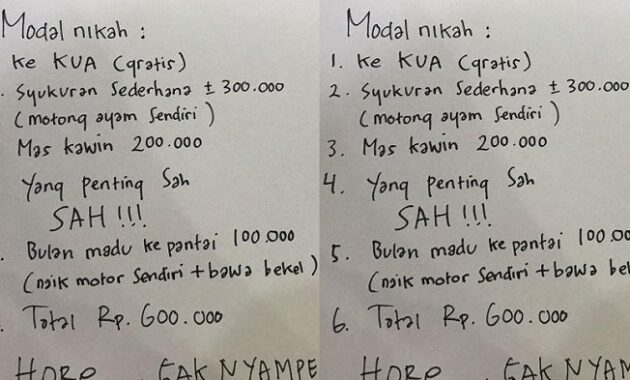 Modal nikah :
Ke KUA (gratis)
. Syukuran Sederhana ± 300.000
(motong ayam Sendiri)
Mas kawin 200.000
Yang penting Sah
SAH !!!
. Bulan madu ke pantai 100.000
(naik motor Sendiri + bawa bekel)
. Total Rp. 600.000
HORE GAK NYAMPE
Modal nikah :
1. Ke KUA (gratis)
2. Syukuran Sederhana ± 300.000
(motong ayam Sendiri)
3. Mas kawin 200.000
4. Yang penting Sah
SAH !!!
5. Bulan madu ke pantai 100.00
(naik motor Sendiri + bawa bek
6. Total Rp. 600.000
HORE GAK NYAM